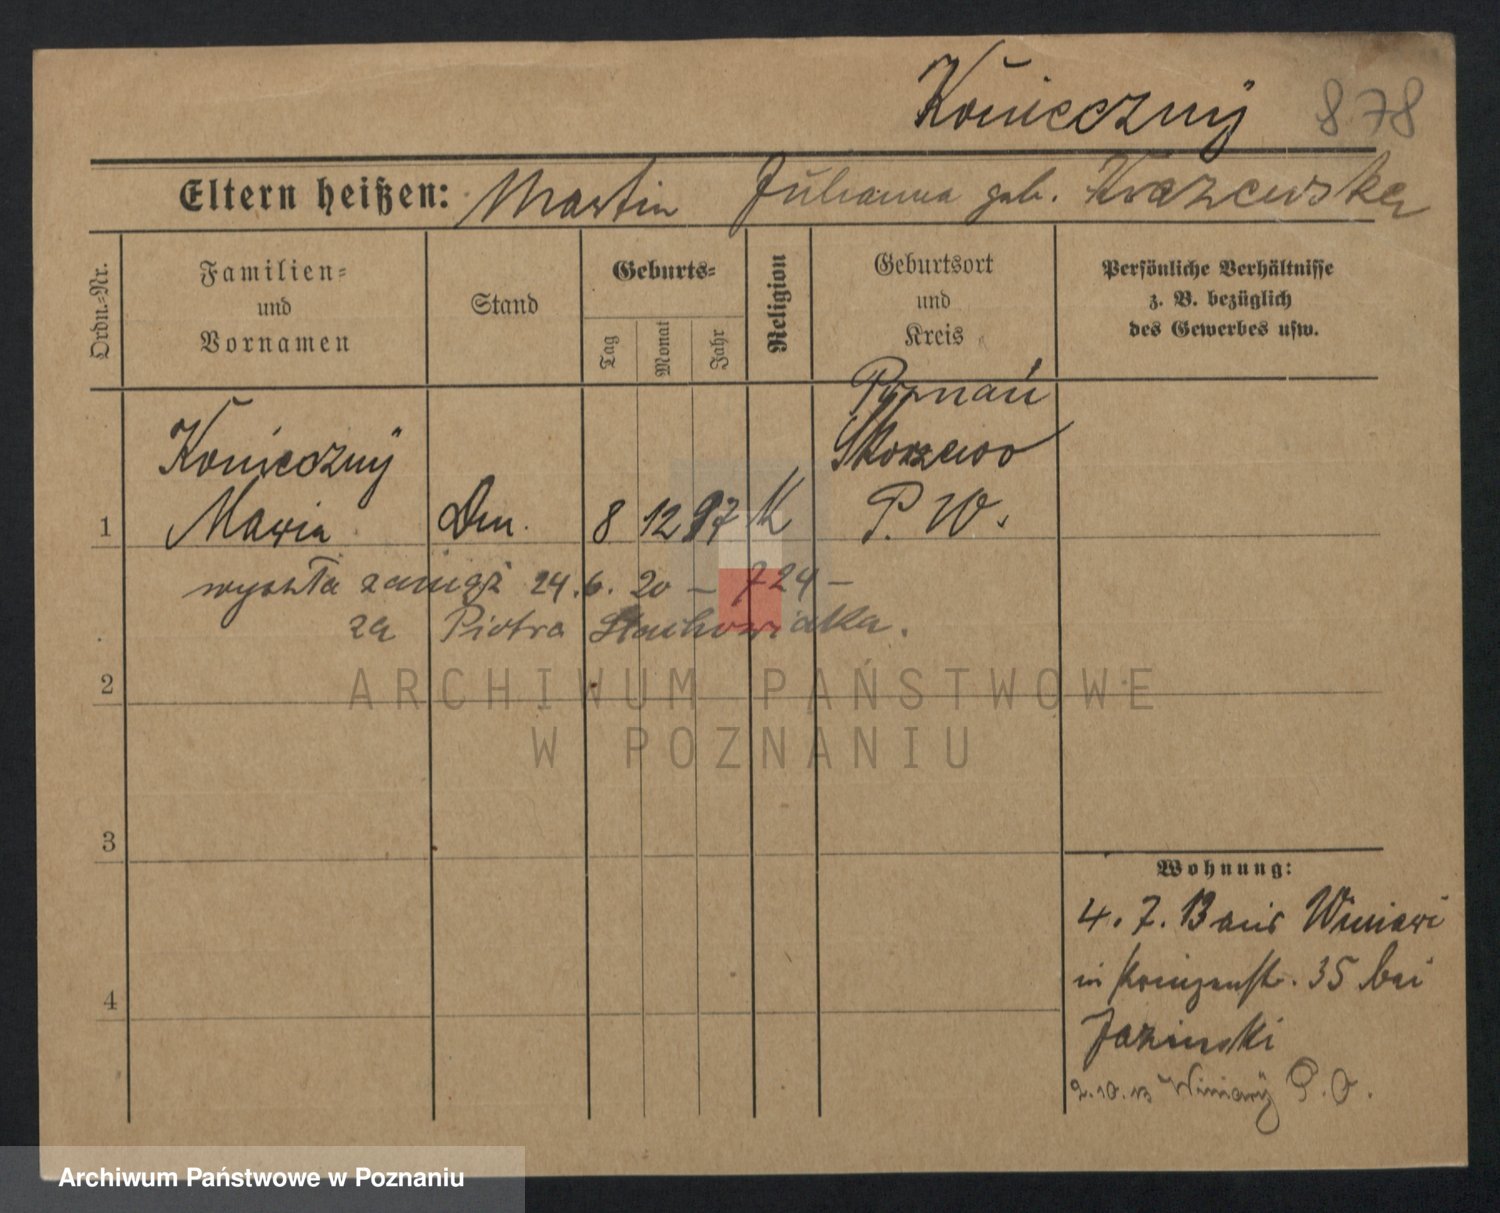 Konieczny 878
Eltern heißen: Martin Julianna geb.
Ordn.-Nr.
Familien-
und
Vornamen
Stand
Geburts-
Tag
Monat
Jahr
Religion
Geburtsort
und
Kreis
Persönliche Verhältnisse
z. B. bezüglich
des Gewerbes usw.
Poznań
Konieczny
Skorzewo
1 Maria 8 12 97 K P. W.
wyszła zamąż 24.6.20 – 724 –
za Piotra Stachowiaka.
2
3
4
Wohnung:
4. 7. 13 Winiari
35 bei
Jazinski
2.10.13 Winiary P. O.
ARCHIWUM PAŃSTWOWE
W POZNANIU
Archiwum Państwowe w Poznaniu